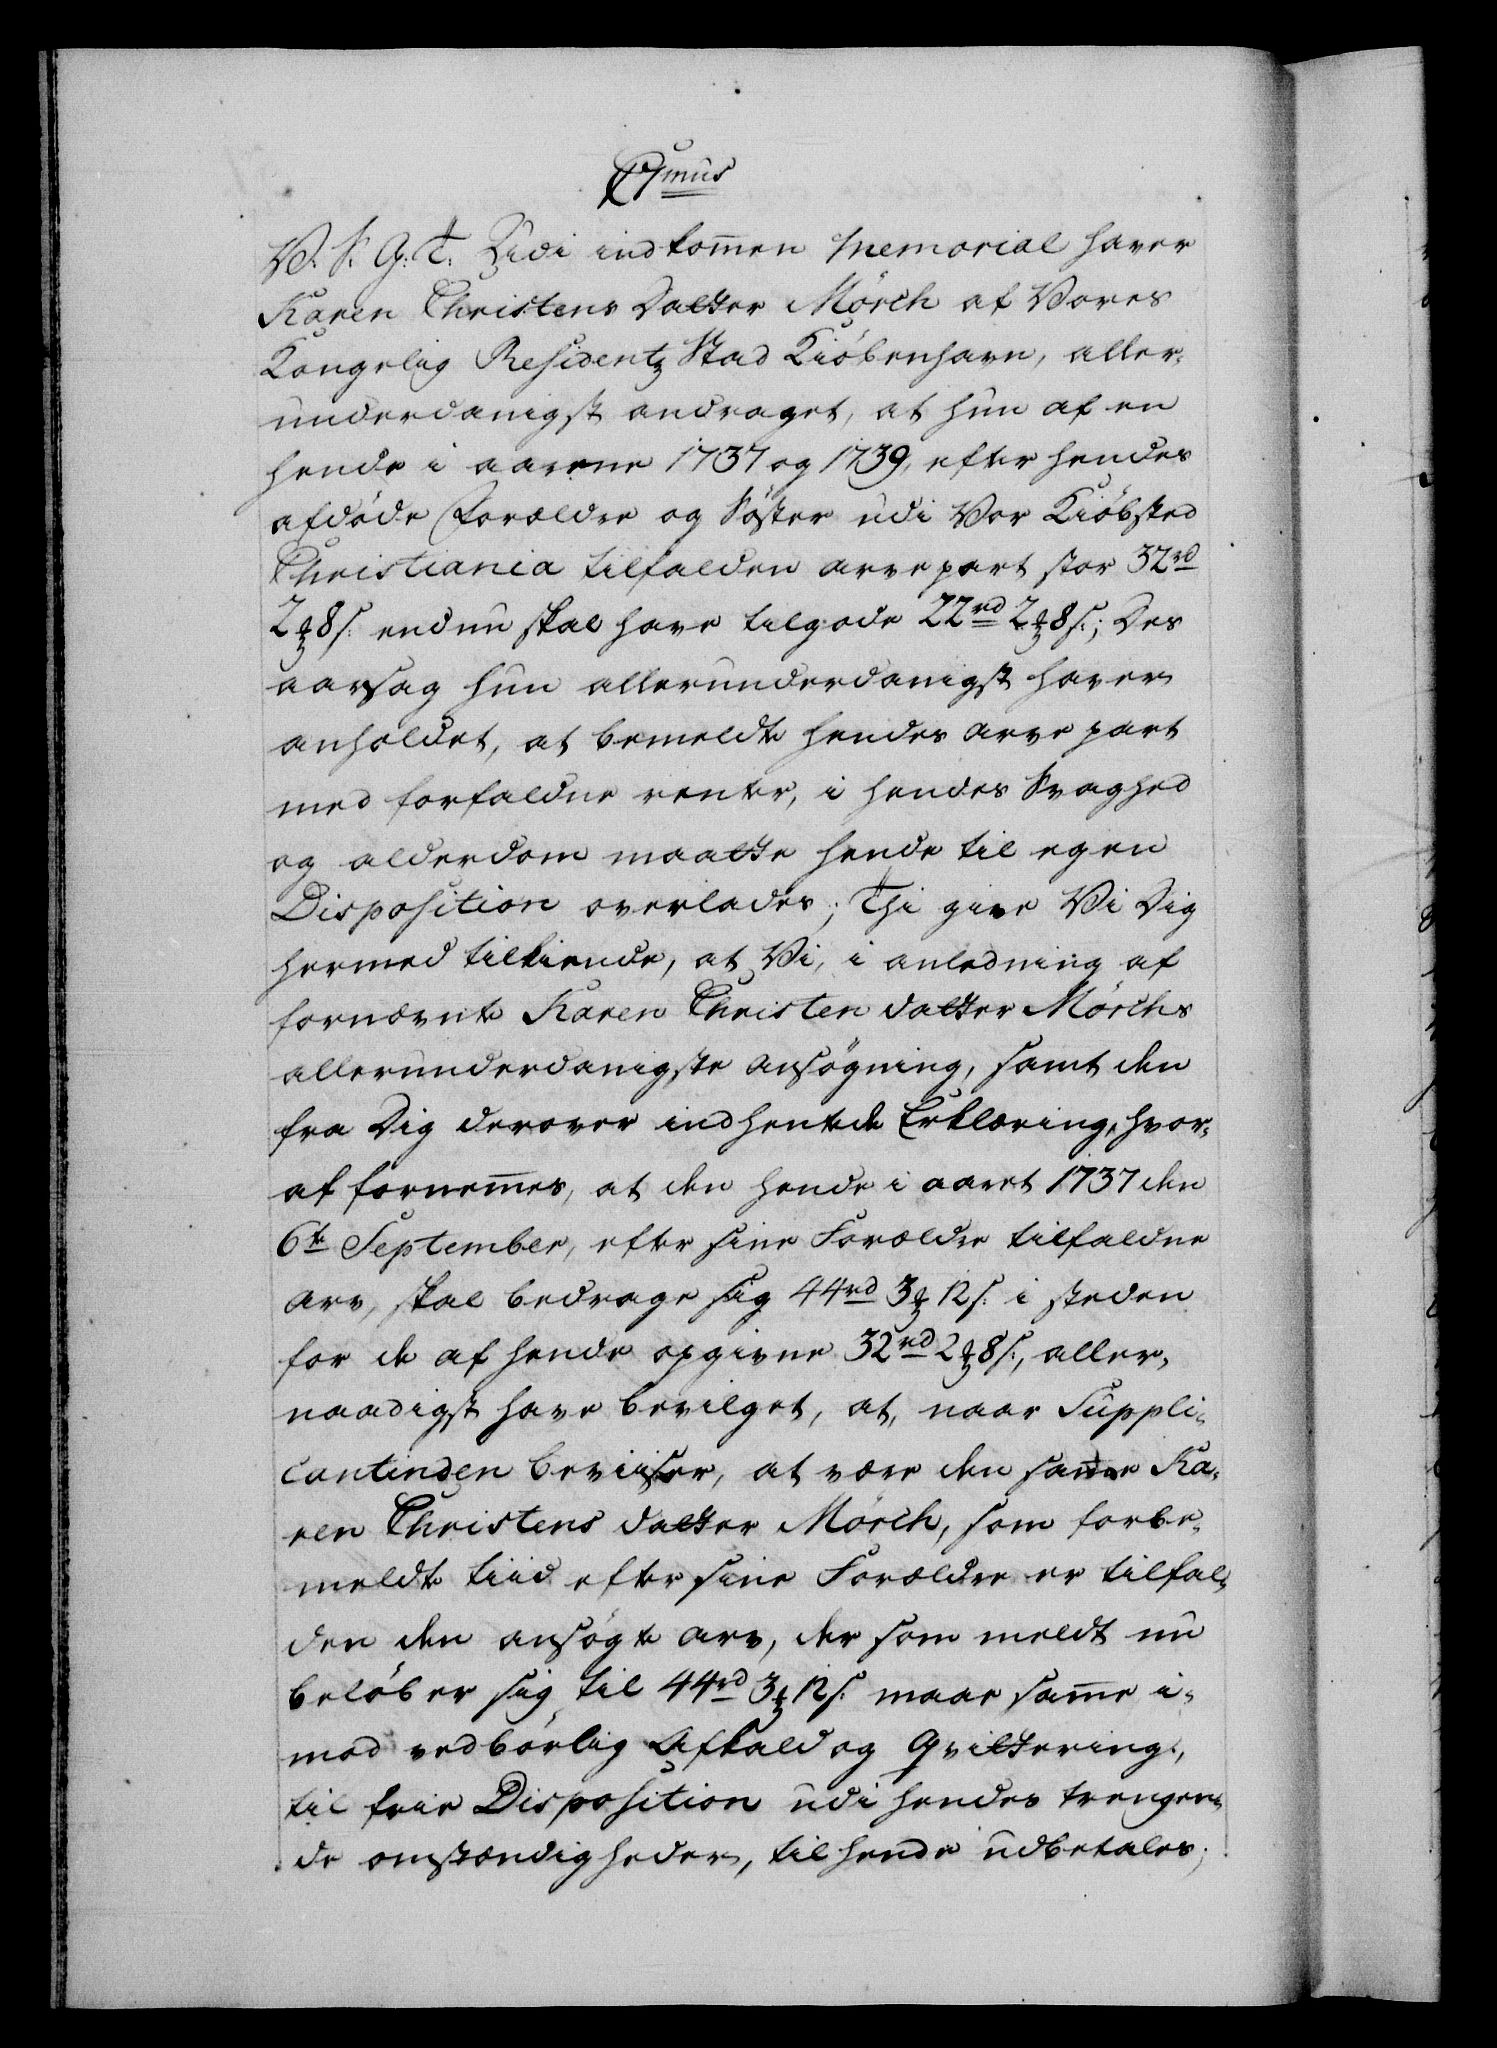 C7mus
V. S. G. T. Udi indkom̄en Memorial haver
Karen Christens Datter Mörch af Vores
Kongelig Residentz Stad Kiöbenhavn, aller-
underdanigst andraget, at hun af en
hende i aarene 1737 og 1739, efter hendes
afdöde Forældre og Söster udi Vor Kiöbsted
Christiania tilfalden arve part stor 32rd
2 ꝑ 8 s. endnu skal have tilgode 22rd 2 ꝑ 8 s.; Des
aarsag hun allerunderdanigst haver
anholdet, at bemeldte hendes arve part
med forfaldne renter, i hendes Svaghed
og alderdom maatte hende til egen
Disposition overlades; Thi give Vi Dig
hermed tilkiende, at Vi, i anledning af
fornævnte Karen Christen datter Mörchs
allerunderdanigste ansögning, samt den
fra Dig derover indhentede Erklæring, hvor-
af fornem̄es, at den hende i aaret 1737 den
6te September, efter sine Forældre tilfaldne
arv, skal bedrage sig 44rd 3 ꝑ 12 s. i steden
for de af hende opgivne 32rd 2 ꝑ 8 s., aller-
naadigst have bevilget, at, naar Suppli-
cantinden beviiser, at være den sande Ka-
ren Christens datter Mörch, som forbe-
meldte tiid efter sine Forældre er tilfal-
den den ansögte arv, der som meldt nu
belöber sig til 44rd 3 ꝑ 12 s. maae sam̄e i-
mod vedbörlig Afkald og Qvittering,
til frie Disposition udi hendes trengen-
de omstændigheder, til hende udbetales;